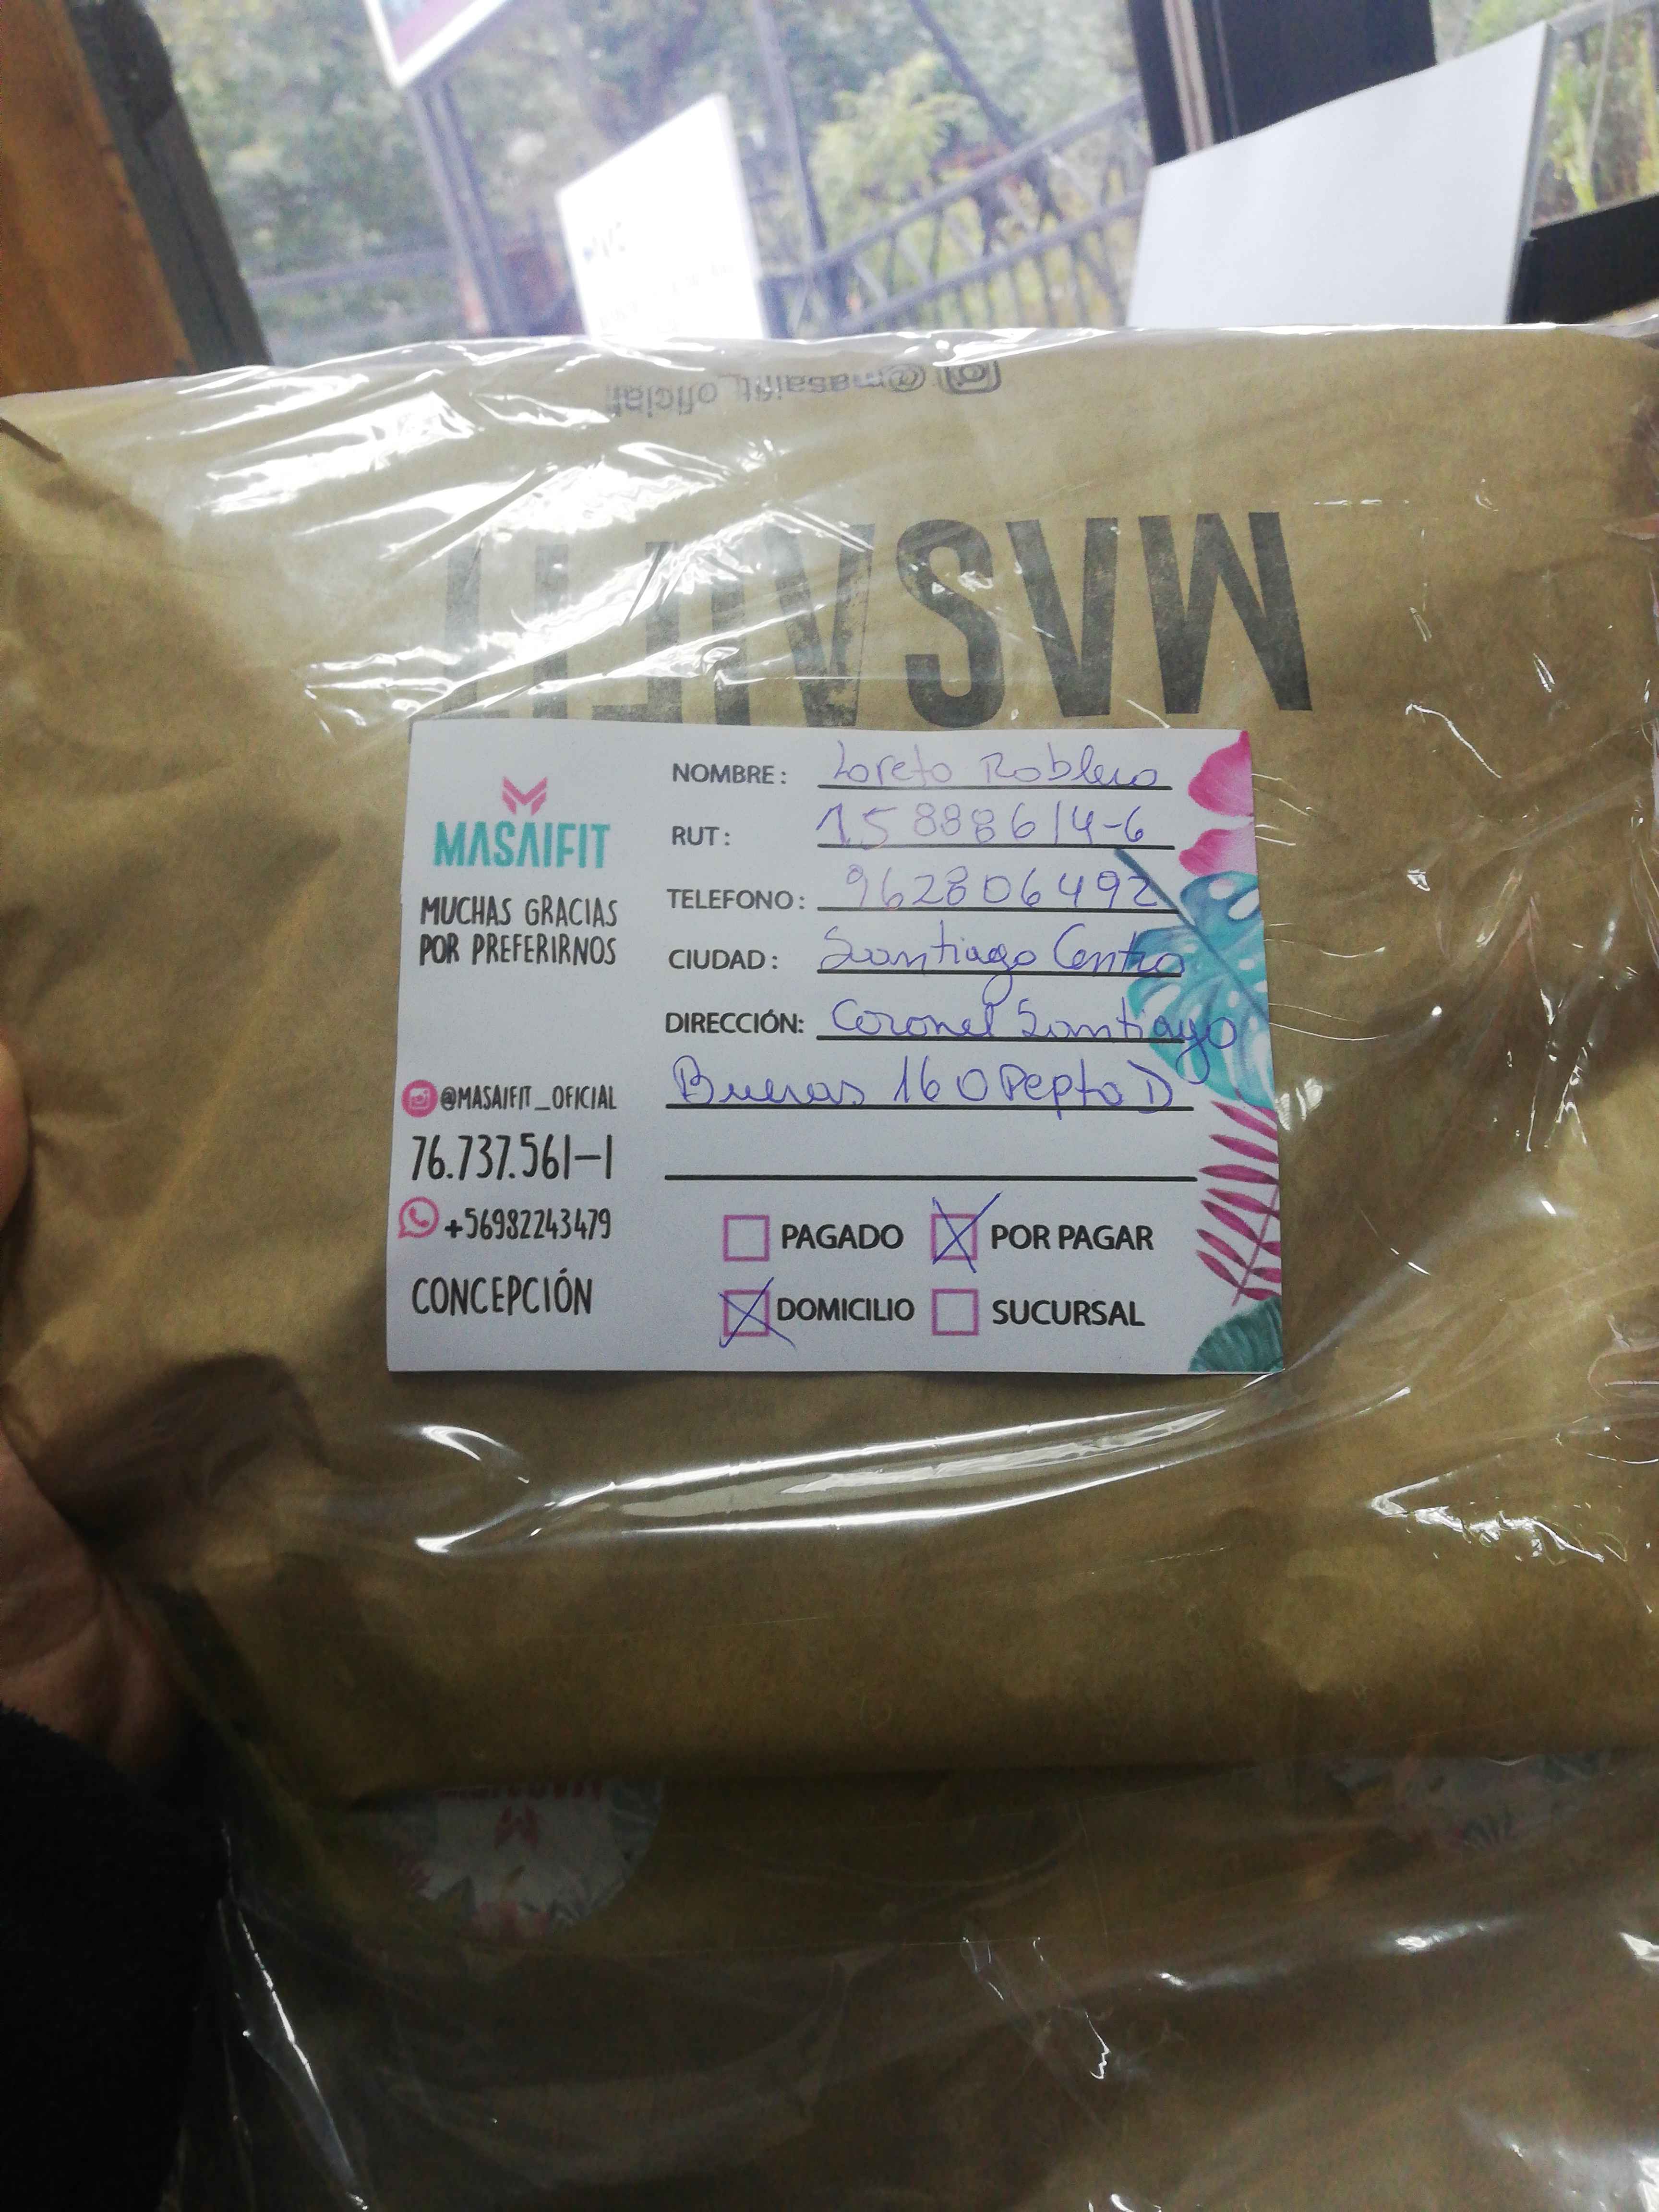 @masaifit_oficial
MASAIFIT
MASAIFIT
MUCHAS GRACIAS
POR PREFERIRNOS
@MASAIFIT_OFICIAL
76.737.561-1
+56982243479
CONCEPCIÓN
NOMBRE: Loreto Roblero
RUT: 15888614-6
TELEFONO: 962806492
CIUDAD: Santiago Centro
DIRECCIÓN: Coronel Santiago
Bueras 160 Depto D
PAGADO POR PAGAR
DOMICILIO SUCURSAL